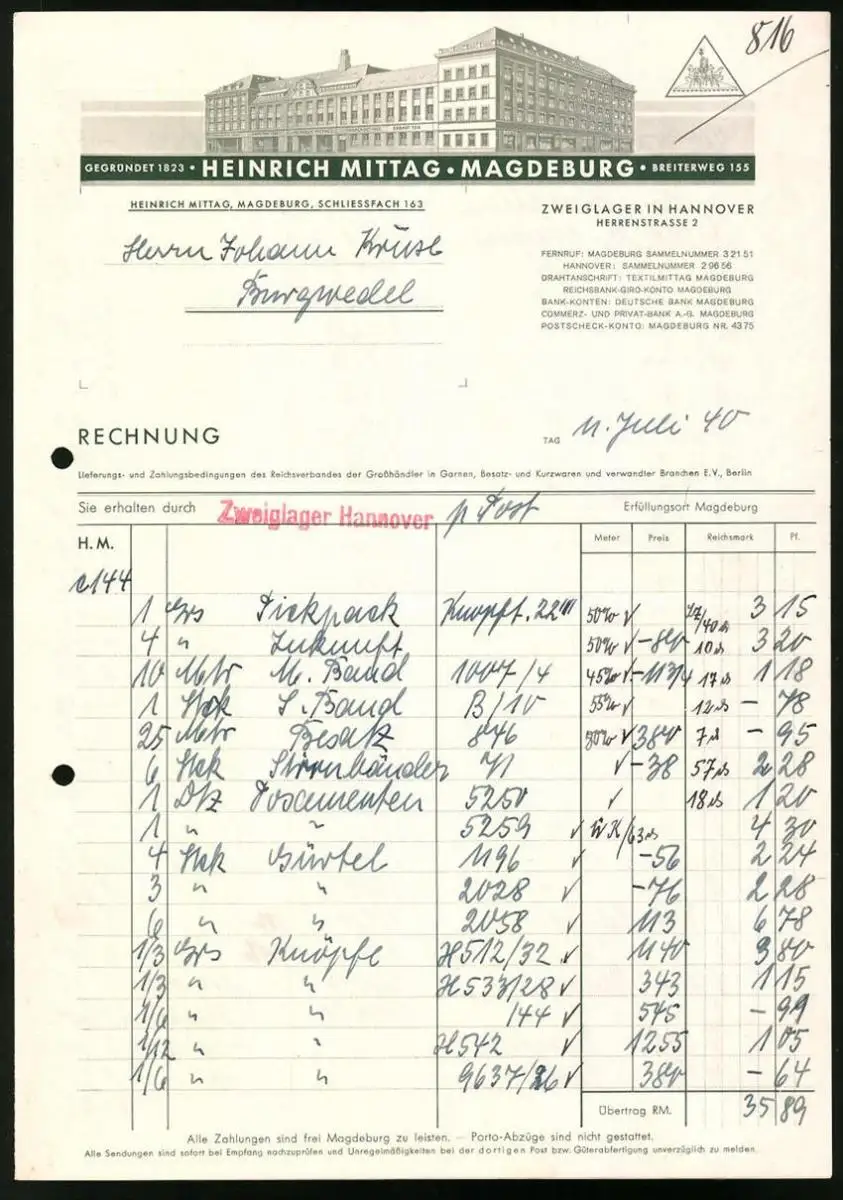 816
GEGRÜNDET 1823 • HEINRICH MITTAG • MAGDEBURG • BREITERWEG 155
HEINRICH MITTAG, MAGDEBURG, SCHLIESSFACH 163
ZWEIGLAGER IN HANNOVER
HERRENSTRASSE 2
Herrn Johann Krüse
Burgwedel
FERNRUF: MAGDEBURG SAMMELNUMMER 3 21 51
HANNOVER: SAMMELNUMMER 2 96 56
DRAHTANSCHRIFT: TEXTILMITTAG MAGDEBURG
REICHSBANK-GIRO-KONTO MAGDEBURG
BANK-KONTEN: DEUTSCHE BANK MAGDEBURG
COMMERZ- UND PRIVAT-BANK A.-G. MAGDEBURG
POSTSCHECK-KONTO: MAGDEBURG NR. 4375
RECHNUNG
TAG 11. Juli 40
Lieferungs- und Zahlungsbedingungen des Reichsverbandes der Großhändler in Garnen, Besatz- und Kurzwaren und verwandter Branchen E.V., Berlin
Sie erhalten durch Zweiglager Hannover p Post Erfüllungsort Magdeburg
H. M. Meter Preis Reichsmark Pf.
144
1 Grs Pickpack Knopft. 22''' 50% ✓ 3 15
4 " Zukunft 50% ✓ -80 10 3 20
10 Mtr M. Band 1007/4 45% ✓ -113/4 17 1 18
1 Stck S. Band B/10 55% ✓ 12 - 78
25 Mtr Besatz 846 ✓ 380 7 - 95
6 Stck Stirnbänder 71 ✓ -38 57 2 28
1 Dtz Posamenten 5250 ✓ 18 1 20
1 " " 5259 ✓ 63 4 30
4 Stck Gürtel 1196 ✓ -56 2 24
3 " " 2028 ✓ -76 2 28
6 " " 2058 ✓ 113 6 78
1/3 Grs Knöpfe H512/32 ✓ 1140 3 80
1/3 " " H533/28 ✓ 343 1 15
1/6 " " 144 ✓ 545 - 99
1/12 " " H542 ✓ 1255 1 05
1/6 " " 9637/26 ✓ 380 - 64
Übertrag RM. 35 89
Alle Zahlungen sind frei Magdeburg zu leisten. — Porto-Abzüge sind nicht gestattet.
Alle Sendungen sind sofort bei Empfang nachzuprüfen und Unregelmäßigkeiten bei der dortigen Post bzw. Güterabfertigung unverzüglich zu melden.